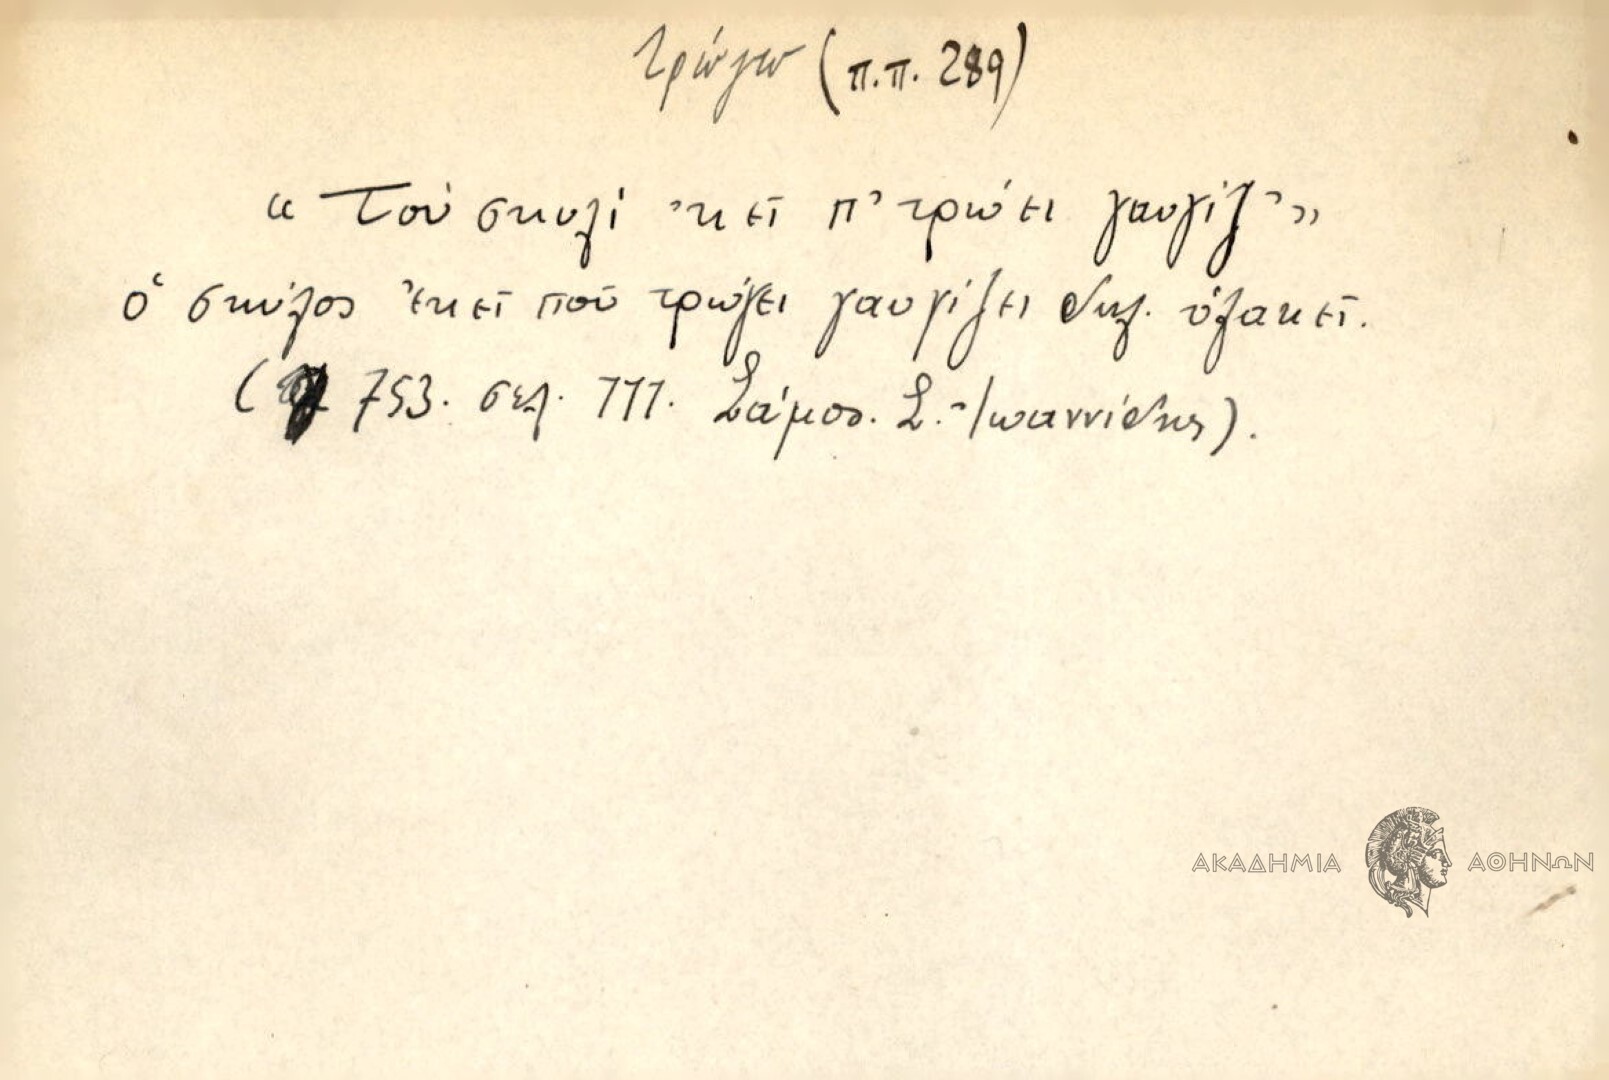 τρώγω (π.π. 289)
« Τοὺ σκυλὶ 'κεῖ π' τρώει γαυγίζ' »
ὁ σκύλος ἐκεῖ ποῦ τρώγει γαυγίζει δηλ. ὑλακεῖ.
( 753. σελ. 111. Σάμος. Σ. Ἰωαννίδης).
ΑΚΑΔΗΜΙΑ ΑΘΗΝΩΝ